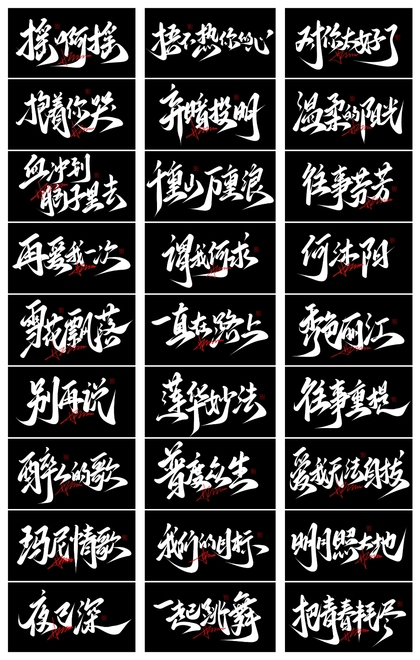 摇啊摇
捂不热你的心
对你太好了
抱着你哭
弃暗投明
温柔的阳光
血冲到
脑子里去
千重山万重浪
往事芬芳
再爱我一次
谓我何求
何沐阳
雪花飘落
一直在路上
秀色丽江
别再说
莲华妙法
往事重提
醉人的歌
普度众生
爱我无法自拔
玛尼情歌
我们的目标
明月照大地
夜已深
一起跳舞
把青春耗尽